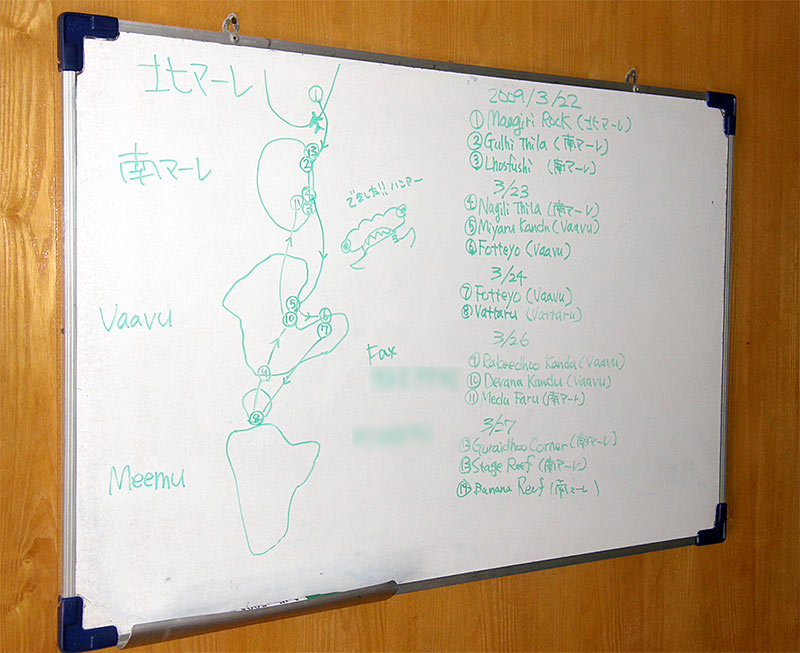 北マーレ
南マーレ
Vaavu
Meemu
①
⑬
②
⑪
⑤
⑩
⑥
⑦
⑨
⑧
でました!! ハンマー
Fax
2009/3/22
① Maagiri Rock (北マーレ)
② Gulhi Thila (南マーレ)
③ Lhosfushi (南マーレ)
3/23
④ Nagili Thila (南マーレ)
⑤ Miyaru Kandu (Vaavu)
⑥ Fotteyo (Vaavu)
3/24
⑦ Fotteyo (Vaavu)
⑧ Vattaru (Vattaru)
3/26
⑨ Rakeedhoo Kandu (Vaavu)
⑩ Devana Kandu (Vaavu)
⑪ Medu Faru (南アート)
3/27
⑫ Guraidhoo Corner (南マーレ)
⑬ Stage Reef (南マーレ)
⑭ Banana Reef (南マーレ)